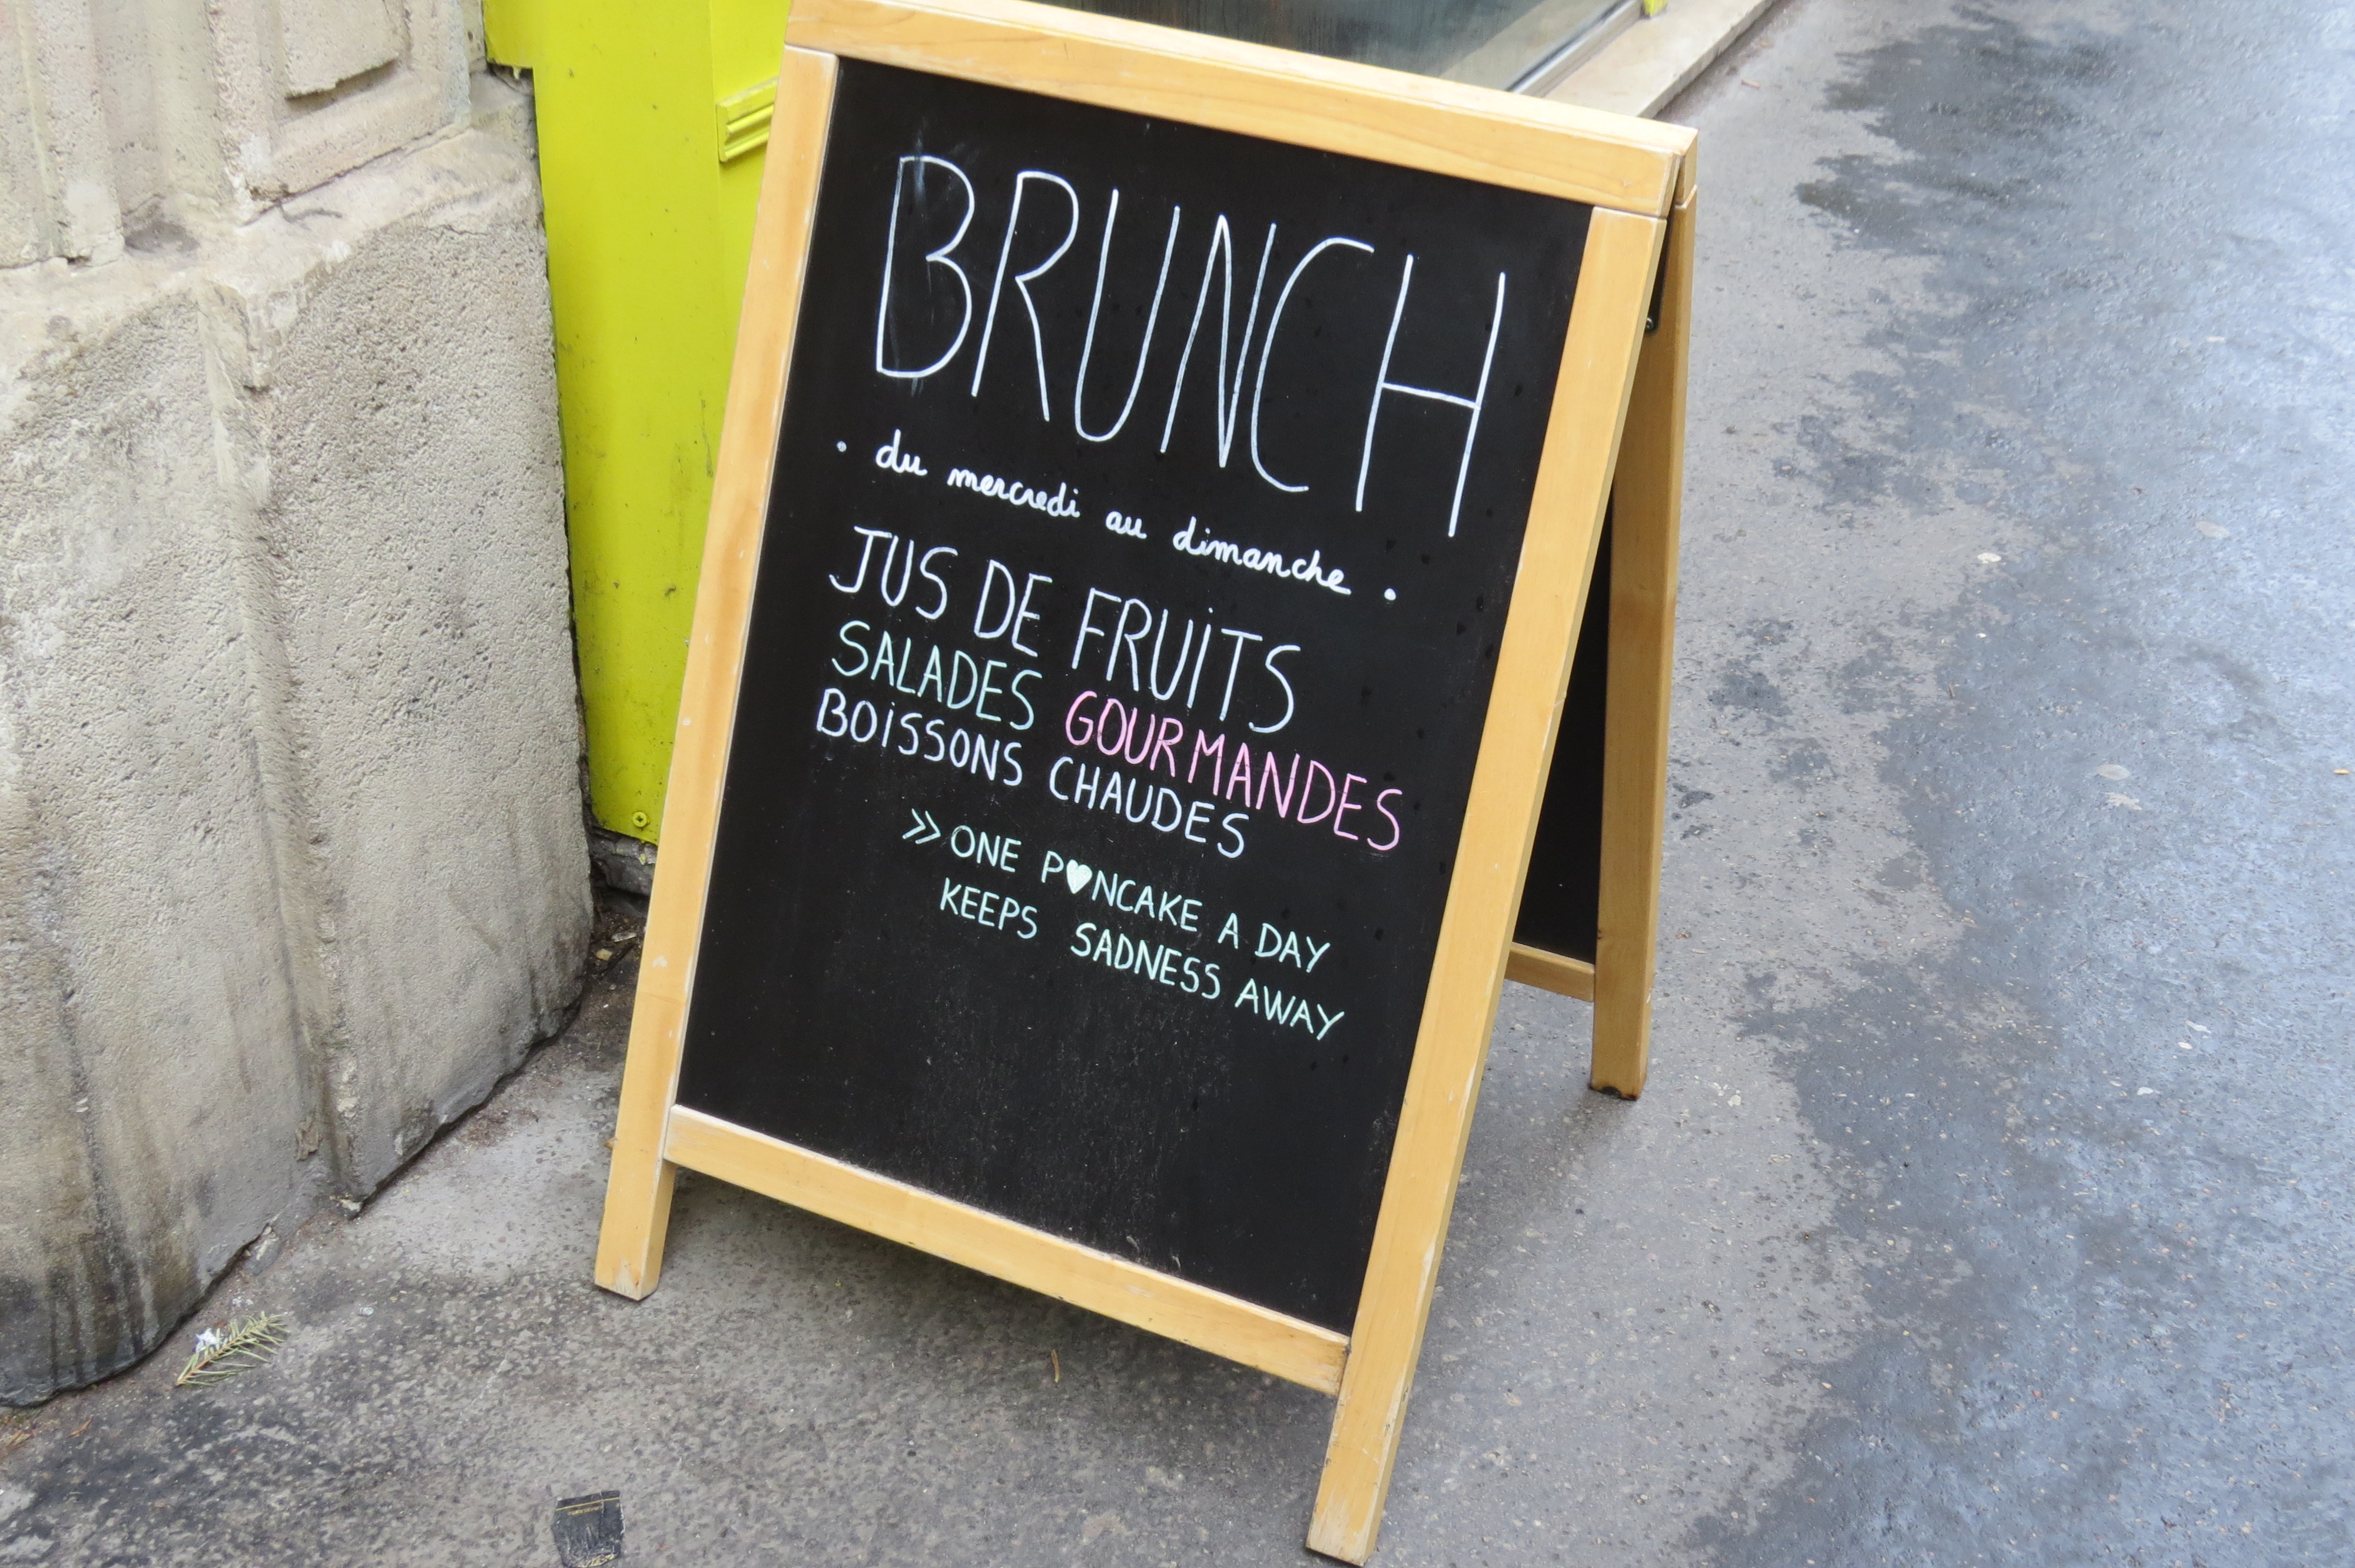 BRUNCH
. du mercredi au dimanche .
JUS DE FRUiTS
SALADES GOURMANDES
BOiSSONS CHAUDES
>> ONE P♥NCAKE A DAY
KEEPS SADNESS AWAY